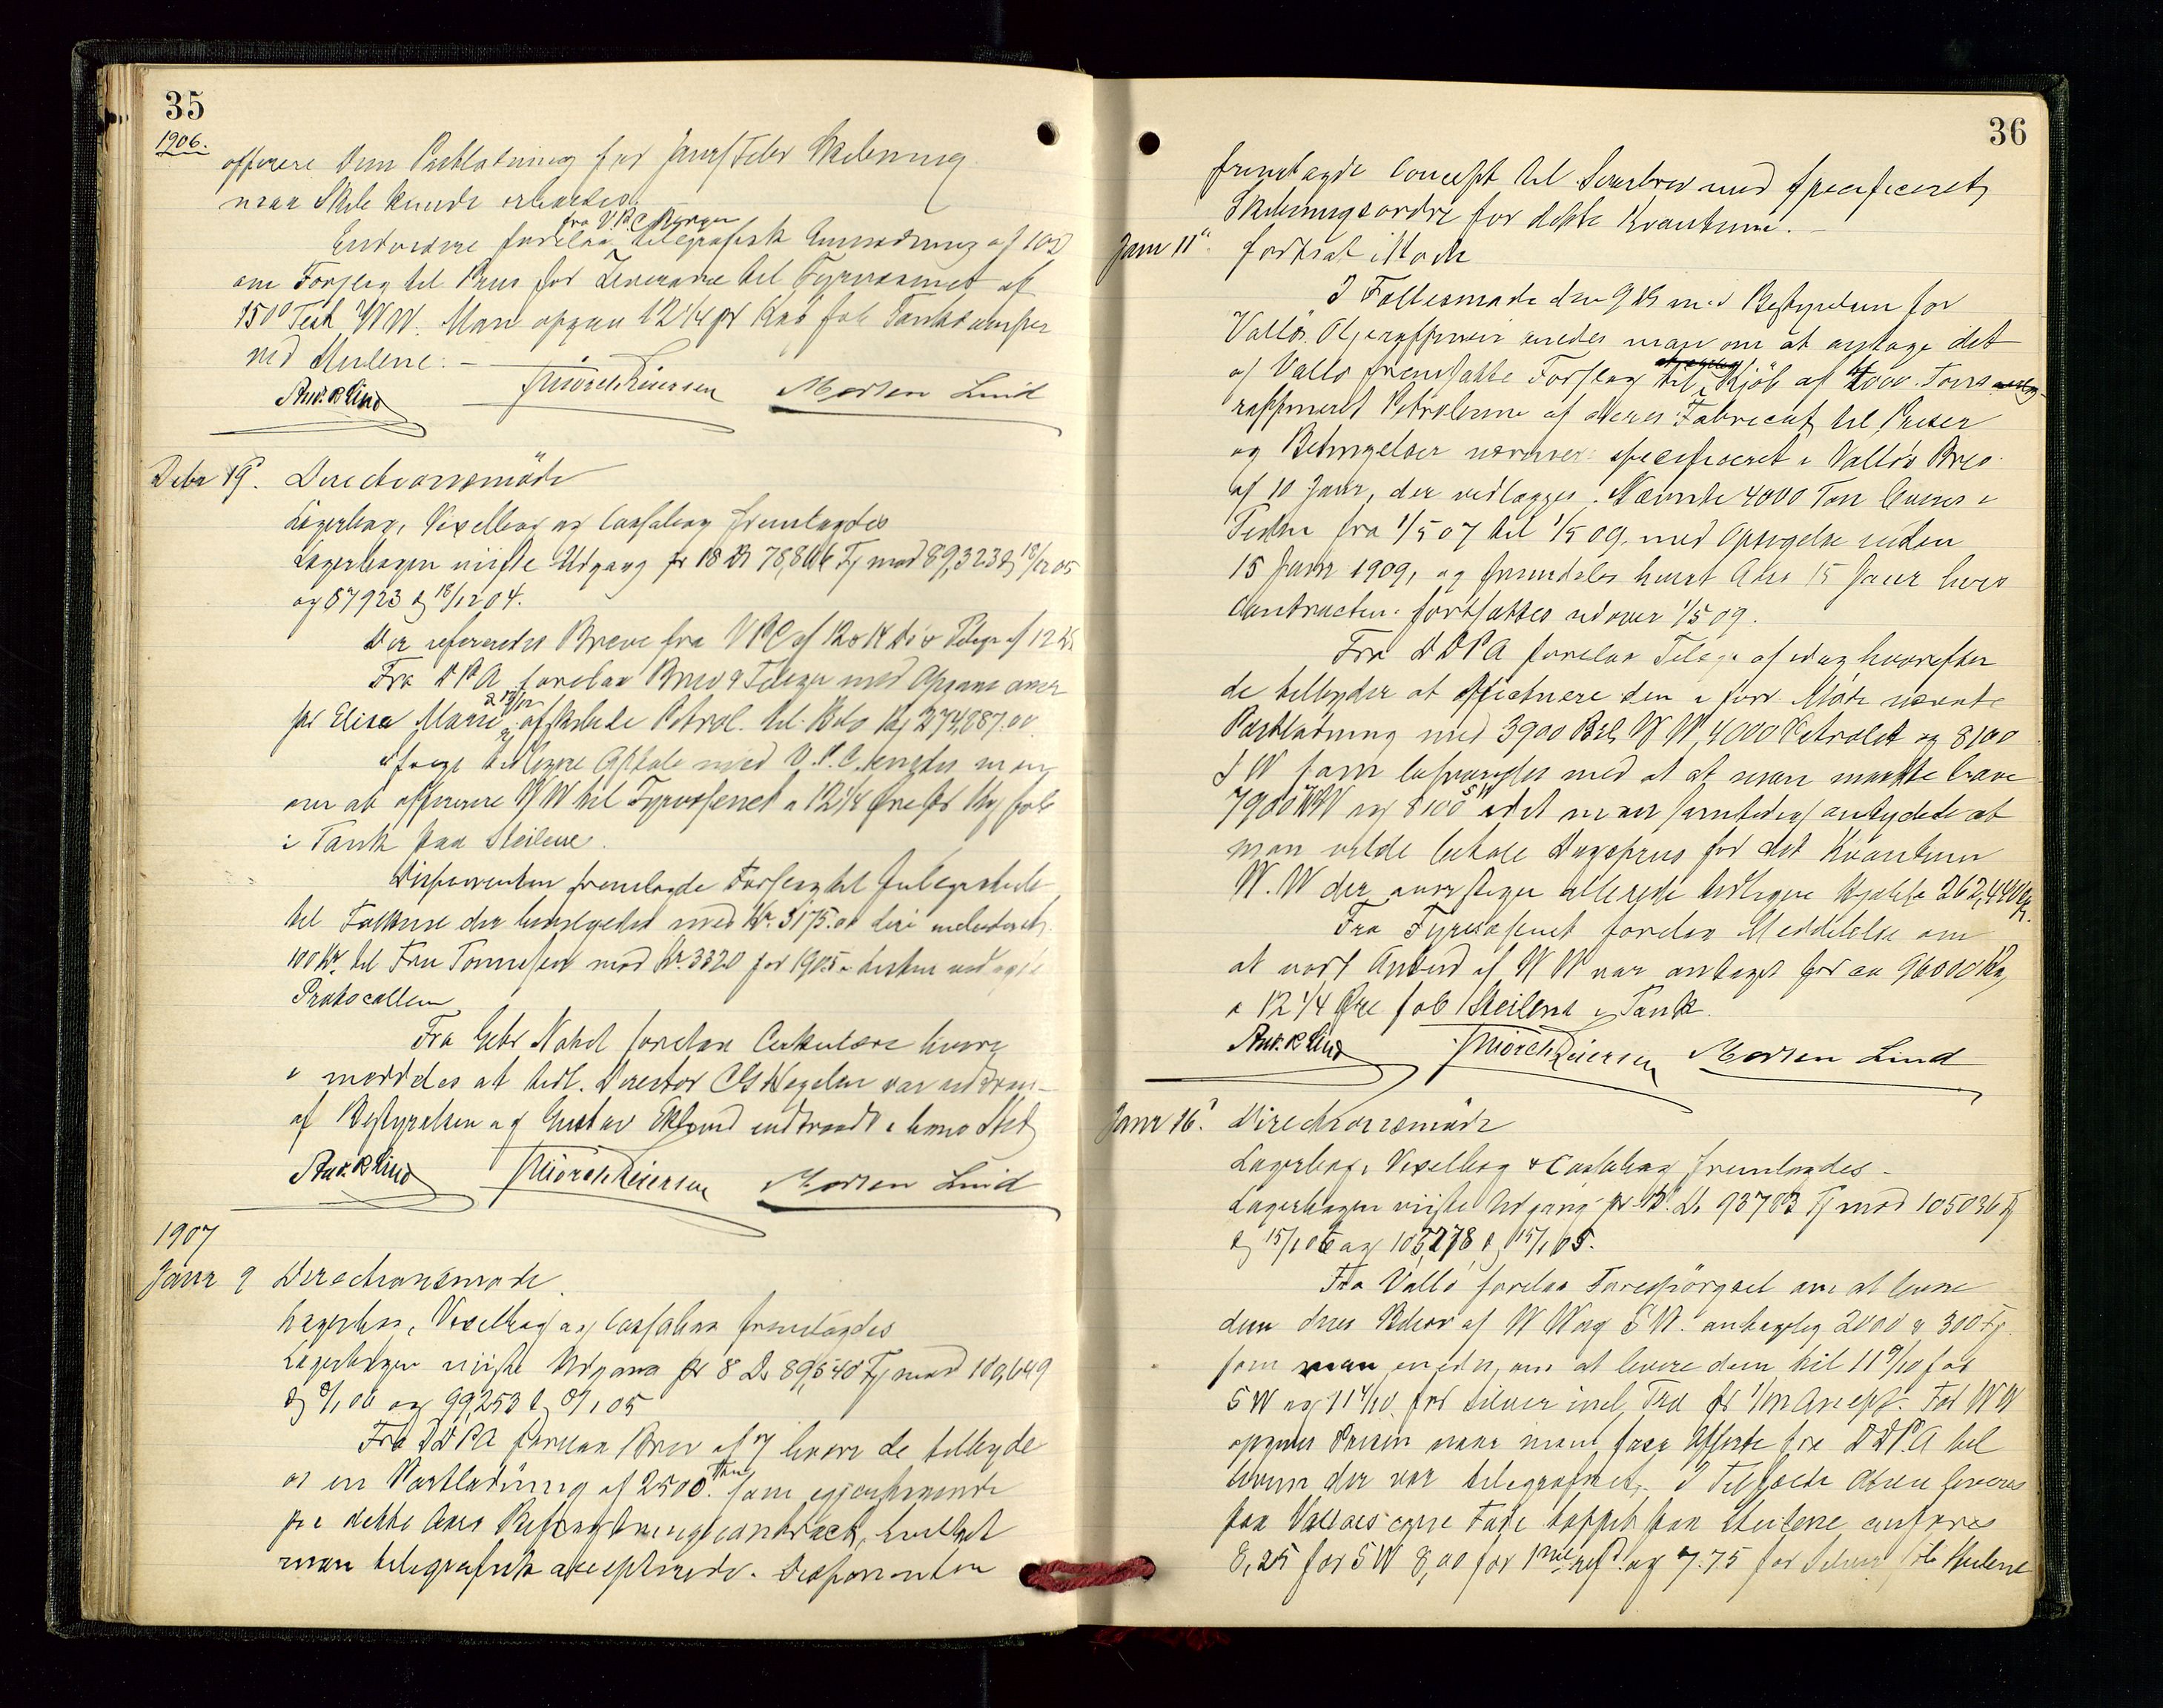 35
1906.
offerere dem Partladning for Janr/Febr Skibning
naar Skib kunde erholdes.
fra VPC Bergen
Endvidere forelaa telegrafisk Anmodning af 10ds
om Forslag til Pris for Leverance til Fyrvæsenet af
150° Test WW. Man opgav 12 1/4 pr Kilo fob Tankdamper
ved Steilene. —
Anv. R Lind   J Mörch Reiersen   Morten Lind
Debr 19. Directionsmöde
Lagerbog, Vexelbog og Cassabog fremlagdes
Lagerbogen viiste Udgang pr 18 Ds 78,806 Fj mod 89,323 Fj 18/12 05
og 87923 Fj 18/12 04.
Der refereredes Breve fra VPC af 12 & 14 ds & Telegr af 12 ds
Fra DDPA forelaa Brev & Telegr med Opgave over
pr Elisa Marie afskibede Petrol. til Kilo Kg 274,887.00
ifölge tidligere Aftale med V.P.C. enedes man
om at offerere WW til Fyrvæsenet a 12 1/4 Øre pr Kg fob
i Tank paa Steilene.
Disponenten fremlagde Forslag til Julegratiale
til Folkene der bevilgedes med Kr. 3175.00 deri inkluderet
100 Kr. til Fru Tonnesen mod Kr. 3320 for 1905 a Listen vedlagt
Protocollen
Fra Gebr Nobel forelaa Cirkulære hvori
meddeles at tidl. Director CG Hagelin var udtraadt
af Bestyrelsen og Gustav Eklund indtraadt i hans Sted
Anv. R Lind   J Mörch Reiersen   Morten Lind
1907
Janr 9 Directionsmöde.
Lagerbog, Vexelbog og Cassabog fremlagdes
Lagerbogen viiste Udgang pr 8 Ds 89,540 Fj mod 109,649
Fj 8/1 06 og 99,253 Fj 8/1 05
Fra DDPA forelaa Brev af 7 hvori de tilbyde
os en Partladning af 2500 Tons som igjenstaaende
paa dette Aars Befragtningscontract, hvilket
man telegrafisk accepterede. Disponenten
36
fremlagde Concept til Svarbrev med specificeret
Skibningsordre for dette Kvantum. —
Janr 11. fortsat Möde
I Fællesmøde den 9 ds med Bestyrelsen for
Vallö Oljeraffineri enedes man om at antage det
af Vallö fremsatte Forslag til Kjöb af 4000 Tons
raffineret Petroleum af deres Fabricat til Priser
og Betingelser nærmere specificeret i Vallös Brev
af 10 Janr, der vedlægges. Nævnte 4000 Ton leveres i
Tiden fra 1/5 07 til 1/5 09, med Opsigelse inden
15 Janr 1909, og fremdeles hvert Aars 15 Janr hvis
Contracten fortsættes udover 1/5 09.
Fra DDPA forelaa Telegr af idag hvorefter
de tilbyder at effectuere den i forr Möde nævnte
Partladning med 3900 Brls WW, 4000 Petrolet og 8100
SW som besvaredes med at at man maatte have
7900 WW og 8100 SW idet man samtidig antydede at
man vilde betale Dagspris for det Kvantum
W.W der overstiger allerede tidligere Kjøbte 262,440 Kg.
Fra Fyrvæsenet forelaa Meddelelse om
at vort Anbud af WW var antaget for ca 96000 Kg
a 12 1/4 Øre fob Steilene i Tank.
Anv. R Lind   J Mörch Reiersen   Morten Lind
Janr 16. Directionsmöde
Lagerbog, Vexelbog & Cassabog fremlagdes.
Lagerbogen viiste Udgang pr 15. Ds 93783 Fj mod 105036 Fj
Fj 15/1 06 og 105,278 Fj 15/1 05.
Fra Vallö forelaa Forespörgsel om at levere
dem deres Behov af WW og SW. antagelig 2000 a 300 Fj.
som man enedes om at levere dem til 11 9/10 for
SW og 11 4/10 for Silver incl Træ pr 1/m Accept. For WW
opgives Prisen naar man faar Offerte fra DDPA til
hvem der var telegraferet. I Tilfælde Olien leveres
paa Valløes egne Fade tappet paa Steilene anføres
8,25 for SW 8,00 for Pme refd. og 7.75 for Silver fob Steilene